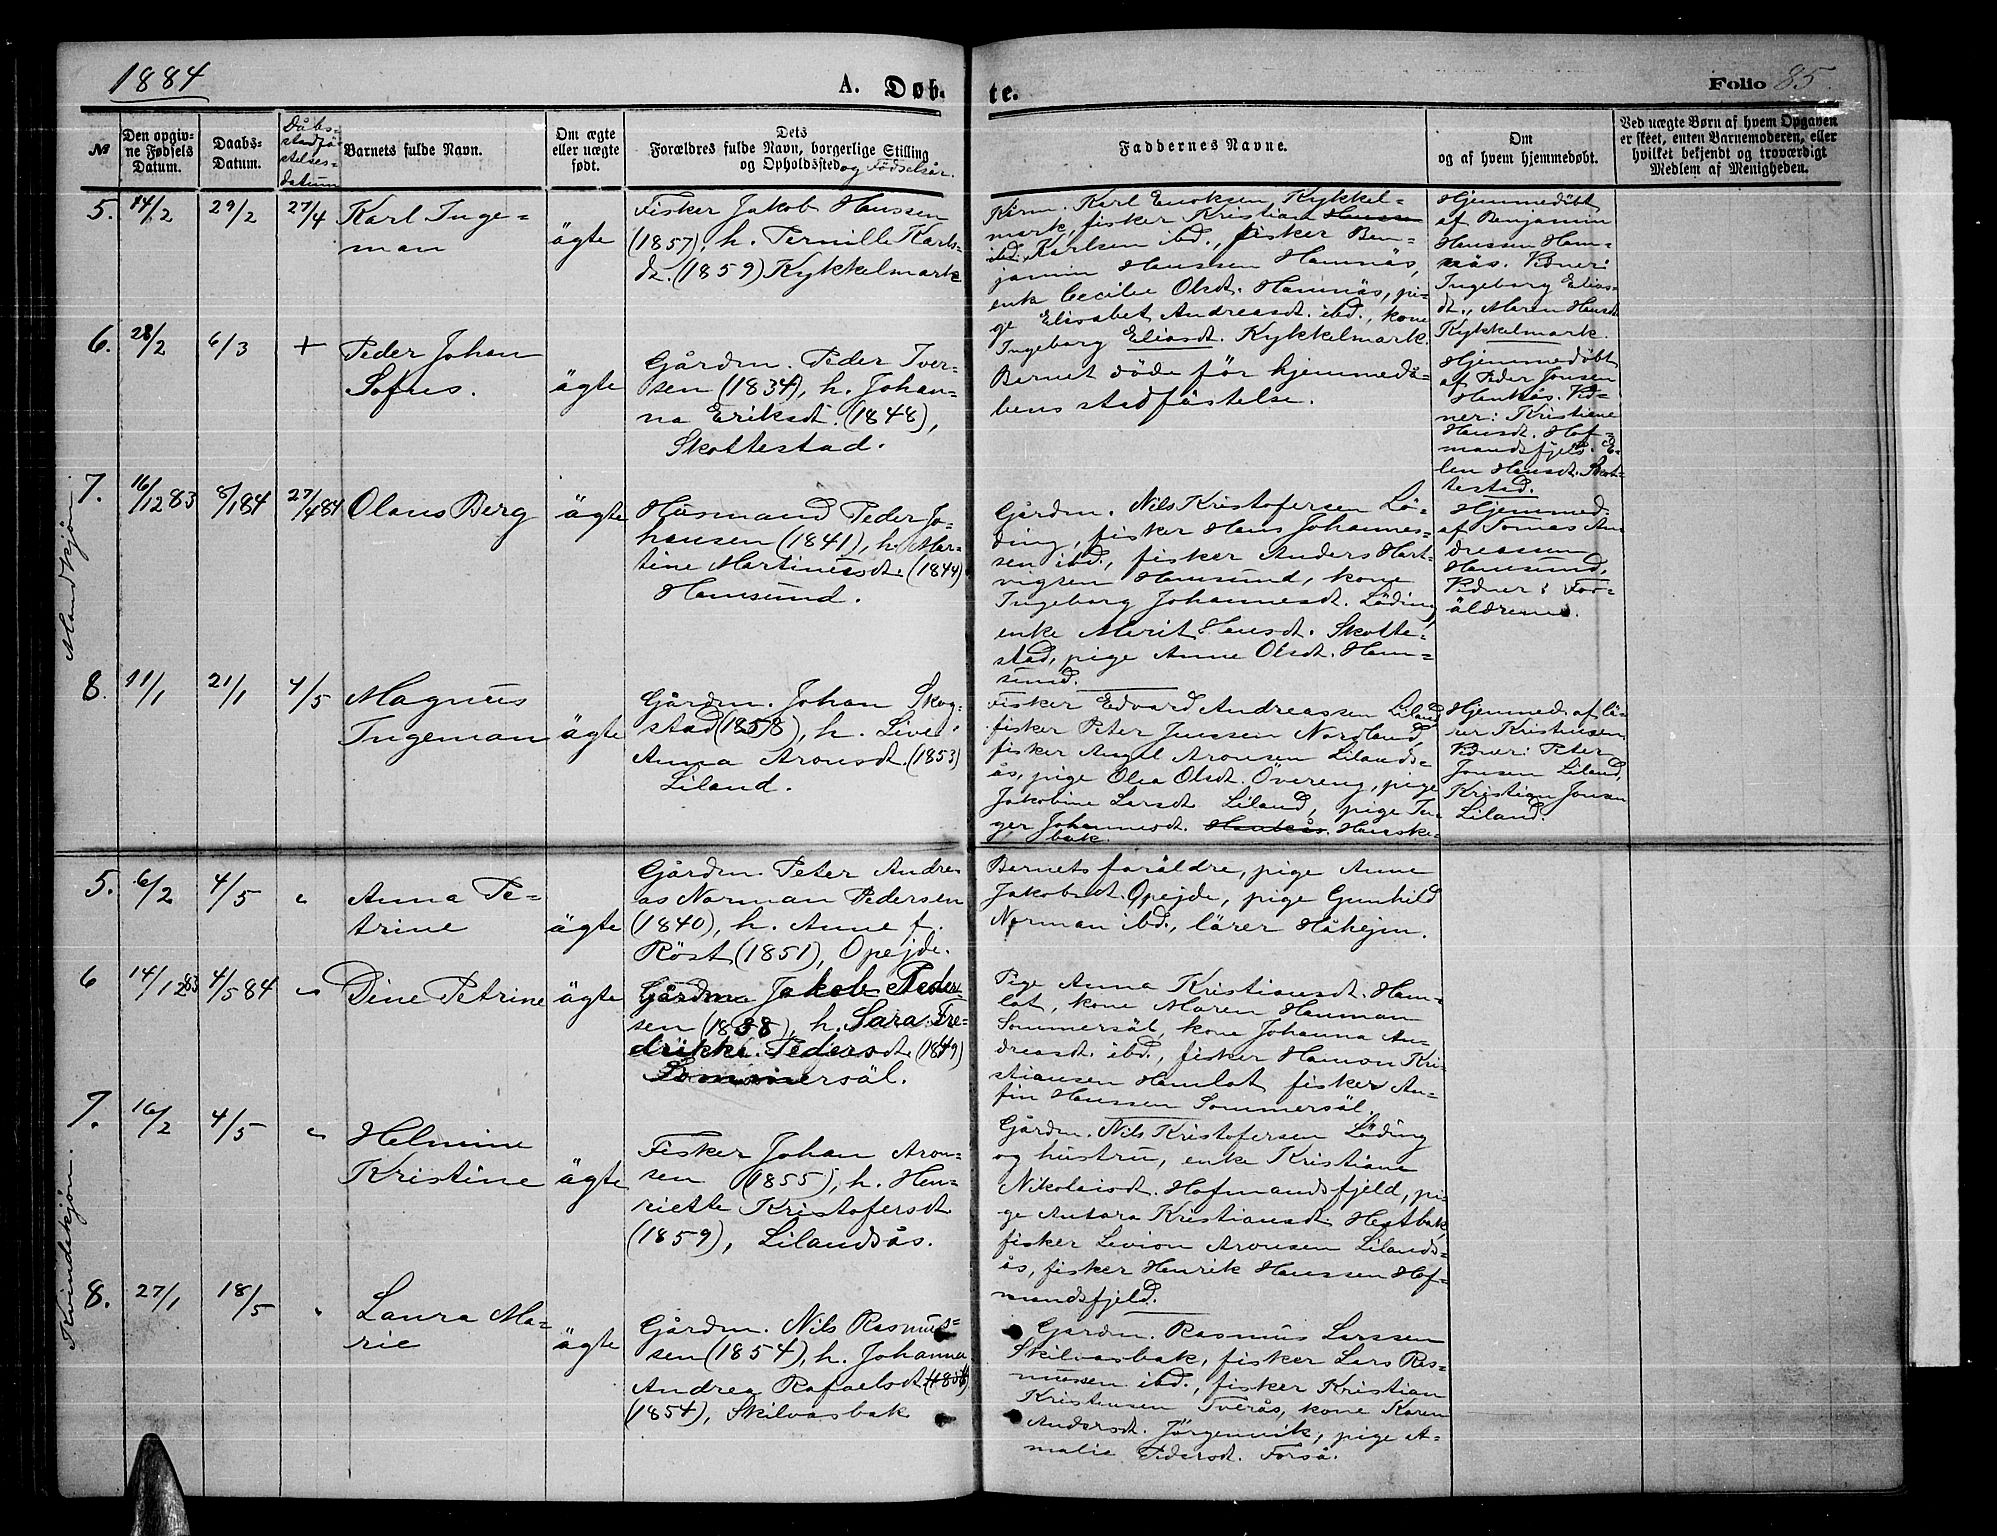 1884
A. Døb-
te.
Folio 85.
No
Den opgiv-
ne Fødsels
Datum.
Daabs-
Datum.
Dåbs-
stadfä-
stelses-
datum
Barnets fulde Navn.
Om ægte
eller uægte
født.
Dets
Forældres fulde Navn, borgerlige Stilling
og Opholdssted og Fødselsår.
Faddernes Navne.
Om
og af hvem hjemmedøbt.
Ved uægte Børn af hvem Opgaven
er skeet, enten Barnemoderen, eller
hvilket bekjendt og troværdigt
Medlem af Menigheden.
Mandkjön.
5. 14/2 29/2 27/4 Karl Inge-
man
ägte
Fisker Jakob Hanssen
(1857), h. Pernille Karls-
dt. (1859) Kykkelmark
Karl Enoksen Kykkel-
mark, fisker Kristian Hanssen
ibd. Karlsen ibd., fisker Ben-
jamin Hanssen Hamnäs,
enke Cecilie Olsdt. Hamnäs, pi-
ge Elisabet Andreasdt. ibd., kone
Ingeborg Eliasdt. Kykkelmark.
Hjemmedöbt
af Benjamin
Hanssen Ham-
näs. Vidner:
Ingeborg Elias-
dt., Maren Hansdt.
Kykkelmark.
6. 28/2 6/3 + Peder Johan
Sofus.
ägte
Gårdm. Peder Iver-
sen (1834), h. Johan-
na Eriksdt. (1848),
Skottestad.
Barnet döde för hjemmedå-
bens stadfästelse.
Hjemmedöbt
af Peder Jonsen
Hankås. Vid-
ner: Kristiane
Hansdt. Hof-
mandsfjeld. E-
len Hansdt. Skot-
testad.
7. 16/12 83 8/1 84 27/4 84 Olaus Berg ägte
Husmand Peder Jo-
hansen (1841), h. Mar-
tine Martinusdt. (1844)
Hamsund.
Gårdm. Nils Kristofersen Lö-
ding, fisker Hans Johannes-
sen ibd., fisker Anders Hart-
vigsen Hamsund, kone
Ingeborg Johannesdt. Löding,
enke Marit Hansdt. Skotte-
stad, pige Anne Olsdt. Ham-
sund.
Hjemmed.
af Tomas An-
dreassen
Hamsund,
Vidner: For-
äldrene.
8. 11/1 21/1 4/5 Magnus
Ingeman
ägte
Gårdm. Johan Skog-
stad (1858), h. Live
Anna Aronsdt. (1853)
Liland.
Fisker Edvard Andreassen Liland
fisker Peter Jenssen Nordland,
fisker Angel Aronsen Lilands-
ås, pige Olea Olsdt. Övereng, pige
Jakobine Larsdt. Liland, pige In-
ger Johannesdt. Hankås. Hanske-
bak.
Hjemmed. af lä-
rer Kristensen
Vidner: Peter
Jonsen Liland,
Kristian Jonsen
Liland.
Kvindekjön.
5. 6/2 4/5 " Anna Pe-
trine
ägte
Gårdm. Peter Andre-
as Norman Pedersen
(1840), h. Anne f.
Röst (1851), Opejde.
Barnets foräldre, pige Anne
Jakobsdt. Opejde, pige Gunhild
Norman ibd., lärer Håkejin.
6 14/12 83 4/5 84 " Dine Petrine ägte
Gårdm. Jakob Peder-
sen (1838), h. Sara Fre-
drikke Pedersdt. (1849)
Sommersäl.
Pige Anna Kristiansdt. Ham-
lot, kone Maren Hanman
Sommersäl, kone Johanna An-
dreasdt. ibd., fisker Hamon Kri-
stiansen Hamlot, fisker An-
fin Hanssen Sommersäl.
7. 16/2 4/5 " Helmine
Kristine
ägte
Fisker Johan Aron-
sen (1855), h. Hen-
riette Kristofersdt.
(1859), Lilandsås.
Gårdm. Nils Kristofersen Löding
og hustru, enke Kristiane
Nikolaisdt. Hofmandsfjeld, pi-
ge Antara Kristiansdt. Hestbak,
fisker Levion Aronsen Lilands-
ås, fisker Henrik Hanssen Hof-
mandsfjeld.
8. 27/1 18/5 " Laura Ma-
rie
ägte
Gårdm. Nils Rasmus-
sen (1854), h. Johanna
Andrea Rafaelsdt.
(1854), Skilvasbak
Gårdm. Rasmus Larssen
Skilvasbak, fisker Lars Ras-
mussen ibd., fisker Kristian
Kristensen Tverås, kone Karen
Andersdt. Jörgenvik, pige A-
malie Pedersdt. Forså.